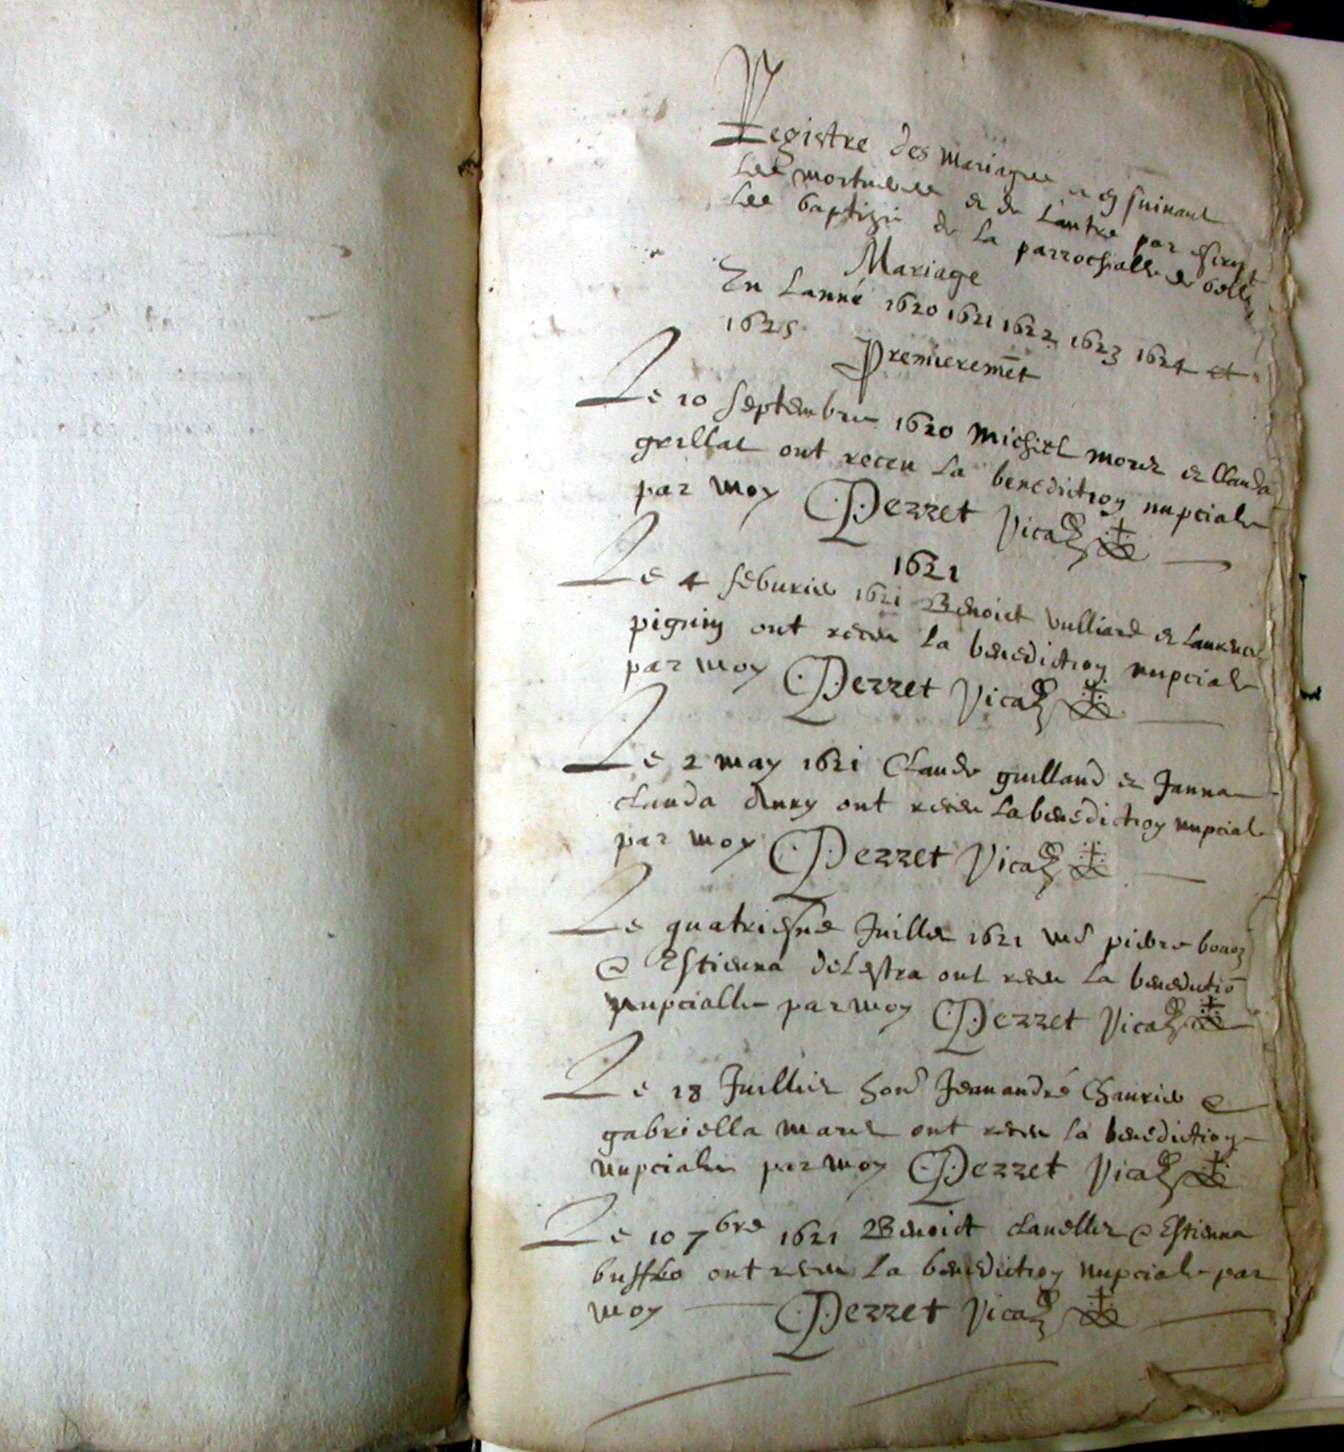 Registre des mariages et en suivant
les mortuaires et de l'autre par escript
les baptizés de la parrochialle de belle
Mariage
En Lanné 1620 1621 1622 1623 1624 et
1625
Premieremēt
Le 10 septembre 1620 Michiel morel et Clauda
grillat ont receu la benediction nupciale
par moy Perret Vicaire
1621
Le 4 feburier 1621 Benoict vulliard et Laurence
pignin ont receu la benediction nupciale
par moy Perret Vicaire
Le 2 may 1621 Claude guilland et Janna
clauda Anry ont receu la benediction nupciale
par moy Perret Vicaire
Le quatriesme Juillet 1621 me pierre
et Estienna delestra ont receu la benedictiō
nupcialle par moy Perret Vicaire
Le 18 Juillet hon Jeanandré Chaurier et
gabriella ont receu la benediction
nupciale par moy Perret Vicaire
Le 10 7bre 1621 Benoict clavellet et Estienna
ont receu la benediction nupciale par
moy Perret Vicaire